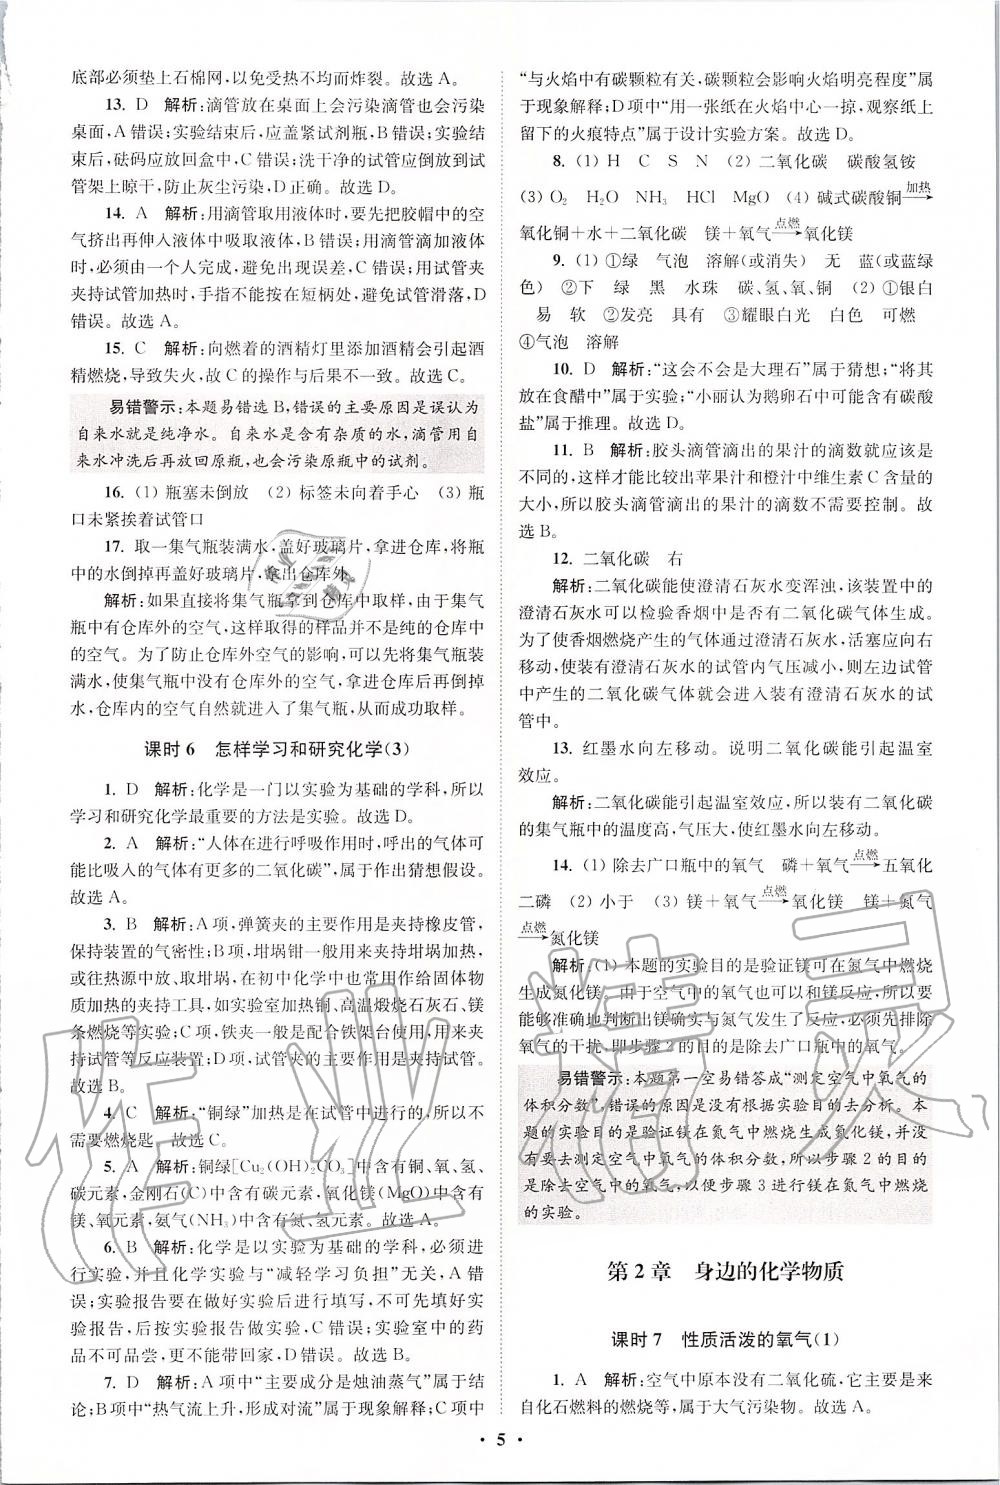 底部必须垫上石棉网,以免受热不均而炸裂。故选 A。
13. D 解析:滴管放在桌面上会污染滴管也会污染
桌面,A 错误;实验结束后,应盖紧试剂瓶,B 错误;实验结
束后,砝码应放回盒中,C 错误;洗干净的试管应倒放到试
管架上晾干,防止灰尘污染,D 正确。故选 D。
14. A 解析:用滴管取用液体时,要先把胶帽中的空
气挤出再伸入液体中吸取液体,B 错误;用滴管滴加液体
时,必须由一个人完成,避免出现误差,C 错误;用试管夹
夹持试管加热时,手指不能按在短柄处,避免试管滑落,D
错误。故选 A。
15. C 解析:向燃着的酒精灯里添加酒精会引起酒
精燃烧,导致失火,故 C 的操作与后果不一致。故选 C。
易错警示:本题易错选 B,错误的主要原因是误认为
自来水就是纯净水。自来水是含有杂质的水,滴管用自
来水冲洗后再放回原瓶,也会污染原瓶中的试剂。
16. (1) 瓶塞未倒放 (2) 标签未向着手心 (3) 瓶
口未紧挨着试管口
17. 取一集气瓶装满水,盖好玻璃片,拿进仓库,将瓶
中的水倒掉再盖好玻璃片,拿出仓库外。
解析:如果直接将集气瓶拿到仓库中取样,由于集气
瓶中有仓库外的空气,这样取得的样品并不是纯的仓库中
的空气。为了防止仓库外空气的影响,可以先将集气瓶装
满水,使集气瓶中没有仓库外的空气,拿进仓库后再倒掉
水,仓库内的空气自然就进入了集气瓶,从而成功取样。
课时 6 怎样学习和研究化学(3)
1. D 解析:化学是一门以实验为基础的学科,所以
学习和研究化学最重要的方法是实验。故选 D。
2. A 解析:“人体在进行呼吸作用时,呼出的气体可
能比吸入的气体有更多的二氧化碳”,属于作出猜想假设。
故选 A。
3. B 解析:A 项,弹簧夹的主要作用是夹持橡皮管,
保持装置的气密性;B 项,坩埚钳一般用来夹持坩埚加热,
或往热源中放、取坩埚,在初中化学中也常用作给固体物
质加热的夹持工具,如实验室加热铜、高温煅烧石灰石、镁
条燃烧等实验;C 项,铁夹一般是配合铁架台使用,用来夹
持试管等反应装置;D 项,试管夹的主要作用是夹持试管。
故选 B。
4. C 解析:“铜绿”加热是在试管中进行的,所以不
需要燃烧匙。故选 C。
5. A 解析:铜绿[Cu₂(OH)₂CO₃]中含有铜、氧、氢、
碳元素,金刚石(C)中含有碳元素,氧化镁(MgO)中含有
镁、氧元素,氨气(NH₃)中含有氮、氢元素。故选 A。
6. B 解析:化学是以实验为基础的学科,必须进行
实验,并且化学实验与“减轻学习负担”无关,A 错
误;实验报告要在做好实验后进行填写,不可先填写实
验报告,后按实验报告做实验,C 错误;实验室中的药
品不可品尝,更不能带回家,D 错误。故选 B。
7. D 解析:A 项中“主要成分是烛油蒸气”属于结
论;B 项中“热气流上升,形成对流”属于现象解释;C 项中
“与火焰中有碳颗粒有关,碳颗粒会影响火焰明亮程度”属
于现象解释;D 项中“用一张纸在火焰中心一掠,观察纸上
留下的火痕特点”属于设计实验方案。故选 D。
8. (1) H C S N (2) 二氧化碳 碳酸氢铵
(3) O₂ H₂O NH₃ HCl MgO (4) 碱式碳酸铜 加热→
氧化铜+水+二氧化碳 镁+氧气 点燃→ 氧化镁
9. (1) ①绿 气泡 溶解(或消失) 无 蓝(或蓝绿
色) ②下 绿 黑 水珠 碳、氢、氧、铜 (2) ①银白
易 软 ②发亮 具有 ③耀眼白光 白色 可燃
④气泡 溶解
10. D 解析:“这会不会是大理石”属于猜想;“将其
放在食醋中”属于实验;“小丽认为鹅卵石中可能含有碳酸
盐”属于推理。故选 D。
11. B 解析:胶头滴管滴出的果汁的滴数就应该是
不同的,这样才能比较出苹果汁和橙汁中维生素 C 含量的
大小,所以胶头滴管滴出的果汁的滴数不需要控制。故
选 B。
12. 二氧化碳 右
解析:二氧化碳能使澄清石灰水变浑浊,该装置中的
澄清石灰水可以检验香烟中是否有二氧化碳气体生成。
为了使香烟燃烧产生的气体通过澄清石灰水,活塞应向右
移动,使装有澄清石灰水的试管内气压减小,则左边试管
中产生的二氧化碳气体就会进入装有澄清石灰水的试
管中。
13. 红墨水向左移动。说明二氧化碳能引起温室
效应。
解析:二氧化碳能引起温室效应,所以装有二氧化碳
的集气瓶中的温度高,气压大,使红墨水向左移动。
14. (1) 除去广口瓶中的氧气 磷+氧气 点燃→ 五氧化
二磷 (2) 小于 (3) 镁+氧气 点燃→ 氧化镁 镁+氮气
点燃→ 氮化镁
解析:(1) 本题的实验目的是验证镁可在氮气中燃烧
生成氮化镁。由于空气中的氧气也可以和镁反应,所以要
能够准确地判断出镁确实与氮气发生了反应,必须先排除
氧气的干扰,即步骤 2 的目的是除去广口瓶中的氧气。
易错警示:本题第一空易错答成“测定空气中氧气的
体积分数”,错误的原因是没有根据实验目的去分析。本
题的实验目的是验证镁在氮气中燃烧生成氮化镁,并没
有要去测定空气中氧气的体积分数,所以步骤 2 的目的
是除去空气中的氧气,以便步骤 3 进行镁在氮气中燃烧
的实验。
第 2 章 身边的化学物质
课时 7 性质活泼的氧气(1)
1. A 解析:空气中原本没有二氧化硫,它主要是来
自化石燃料的燃烧等,属于大气污染物。故选 A。
• 5 •
作业精灵